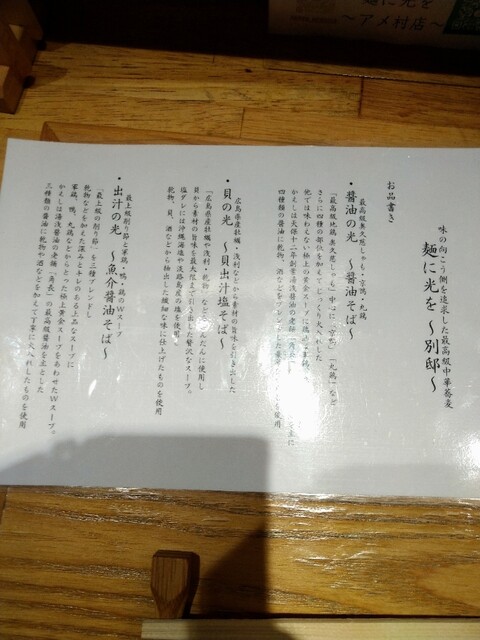 麺に光を
〜アメ村店〜
味の向こう側を追求した最高級中華蕎麦
麺に光を 〜別邸〜
お品書き
最高級奥久慈しゃも・京鴨・丸鶏
・醤油の光 〜醤油そば〜
「最高級地鶏奥久慈しゃも」中心に「京鴨」「丸鶏」など
さらに四種の部位をかもてじっくり火入れした
他では味わえない極上の黄金スープに
かえしは天保十二年創業湯浅醤油の老舗
四種類の醤油に乾物、酒などをブレンドした 使用
広島県産牡蠣・浅利などから素材の旨味を引き出した
・貝の光 〜貝出汁塩そば〜
「広島県産牡蠣や浅利・乾物」などをふんだんに使用し
貝から素材の旨味を最大限まで引き出した贅沢なスープ。
塩ダレには沖縄海塩や淡路島産の塩を使用。
乾物、貝、酒などから抽出した繊細な味に仕上げたものを使用
最上級削り節と軍鶏・鴨・鶏のWスープ
・出汁の光 〜魚介醤油そば〜
「最上級の削り節」を三種ブレンドし
乾物などを加えた深みとキレのある上品なスープに
軍鶏、鴨、丸鶏などからとった極上黄金スープをあわせたWスープ。
かえしは湯浅醤油の老舗「角長」の最高級醤油を主とした
三種類の醤油に乾物や酒などを加えて丁寧に火入れしたものを使用